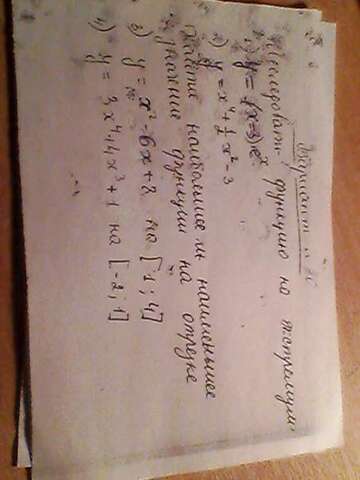 Вариант
Исследовать функцию на экстремум
1) y = (x-3)e^x
2) y = x⁴ + ½x² - 3
Найти наибольшее и наименьшее
значение функции на отрезке
3) y = x² - 6x + 8 на [1; 4]
4) y = 3x⁴ + 4x³ + 1 на [-2; 1]